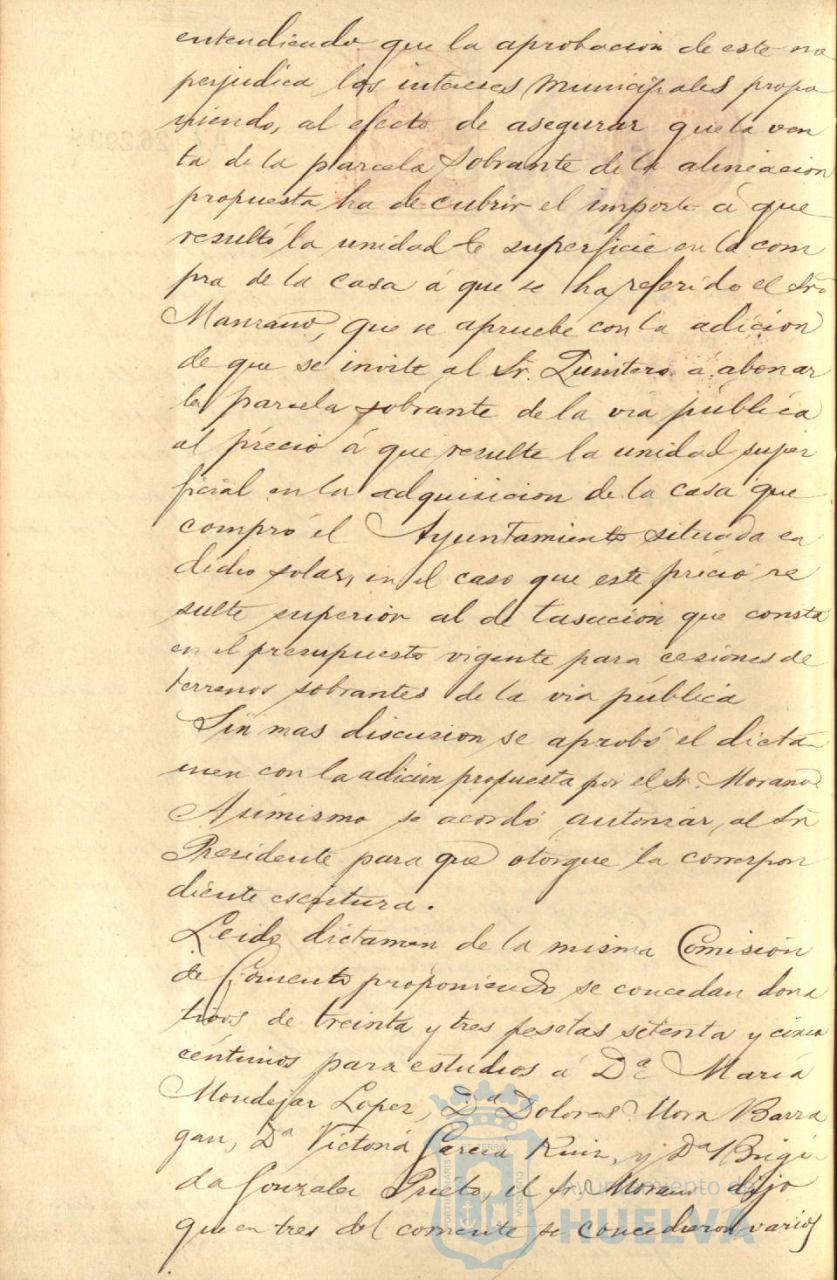 entendiendo que la aprobación de este no
perjudica los intereses municipales propo
niendo, al efecto de asegurar que la ven
ta de la parcela sobrante de la alineacion
propuesta ha de cubrir el importe á que
resultó la unidad de superficie en la com
pra de la casa á que se ha referido el Sr
Manzano, que se apruebe con la adicion
de que se invite al Sr. Quintero á abonar
la parcela sobrante de la via pública
al precio á que resulte la unidad super
ficial en la adquisicion de la casa que
compró el Ayuntamiento situada en
dicho solar, en el caso que este precio re
sulte superior al de tasacion que consta
en el presupuesto vigente para cesiones de
terrenos sobrantes de la via pública
Sin mas discusion se aprobó el dicta
men con la adicion propuesta por el Sr. Morano.
Asimismo se acordó autorizar al Sr
Presidente para que otorgue la correspon
diente escritura.
Leido dictamen de la misma Comisión
de Fomento proponiendo se concedan dona
tivos de treinta y tres pesetas setenta y cinco
céntimos para estudios á Dª María
Mondejar Lopez, Dª Dolores Mora Barra
gan, Dª Victoria Garcia Ruiz, y Dª Brigi
da Gonzalez Prieto, el Sr. Morano dijo
que en tres del corriente se concedieron varios
Ayuntamiento de
HUELVA